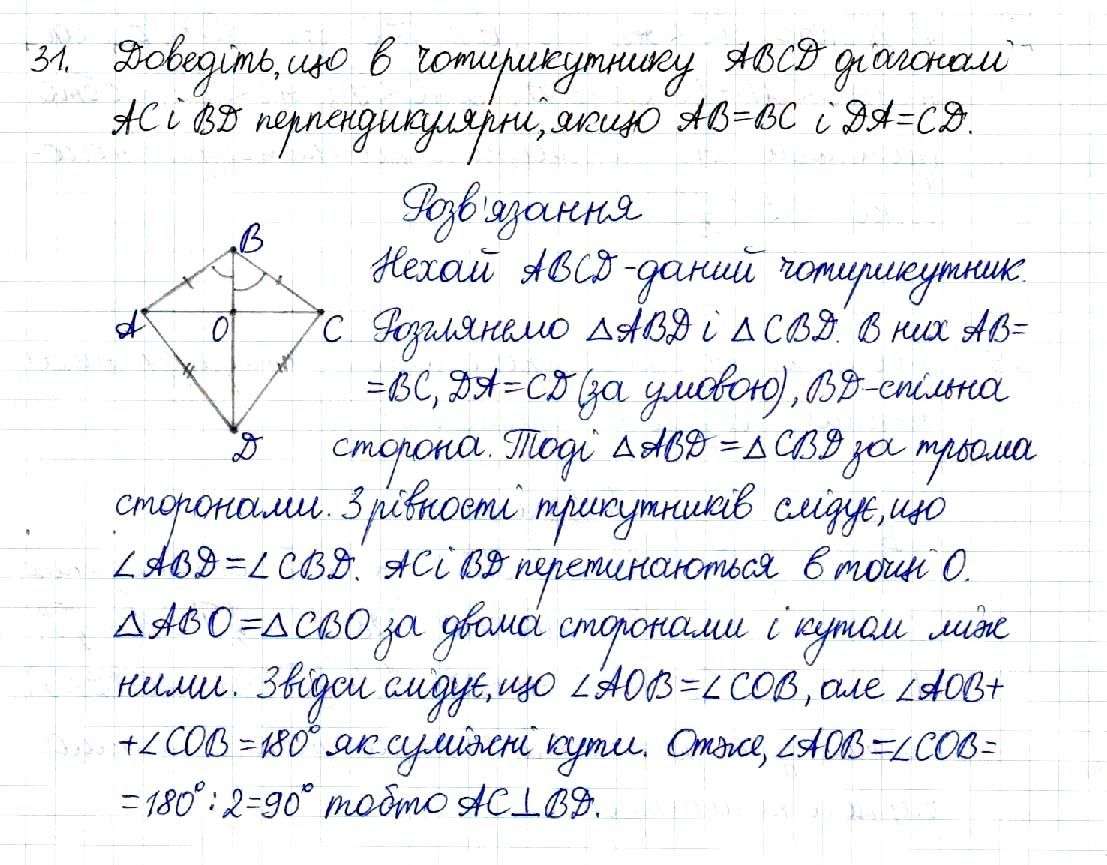 31. Доведіть, що в чотирикутнику ABCD діагоналі
AC і BD перпендикулярні, якщо AB=BC і DA=CD.
Розв'язання
B
A
O
C
D
Нехай ABCD - даний чотирикутник.
Розглянемо △ABD і △CBD. В них AB=
=BC, DA=CD (за умовою), BD-спільна
сторона. Тоді △ABD=△CBD за трьома
сторонами. З рівності трикутників слідує, що
∠ABD=∠CBD. AC і BD перетинаються в точці O.
△ABO=△CBO за двома сторонами і кутом між
ними. Звідси слідує, що ∠AOB=∠COB, але ∠AOB+
+∠COB=180° як суміжні кути. Отже, ∠AOB=∠COB=
=180°:2=90° тобто AC⊥BD.